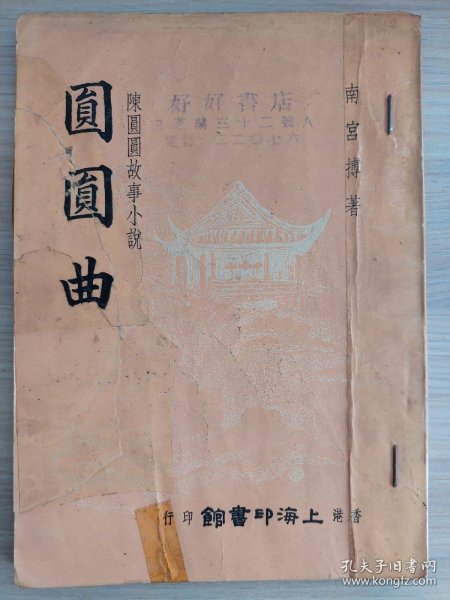 南宮搏著
好好書店
三十二號八
二二〇七六
陳圓圓故事小說
圓圓曲
香港上海印書館印行
孔夫子旧书网
www.kongfz.com